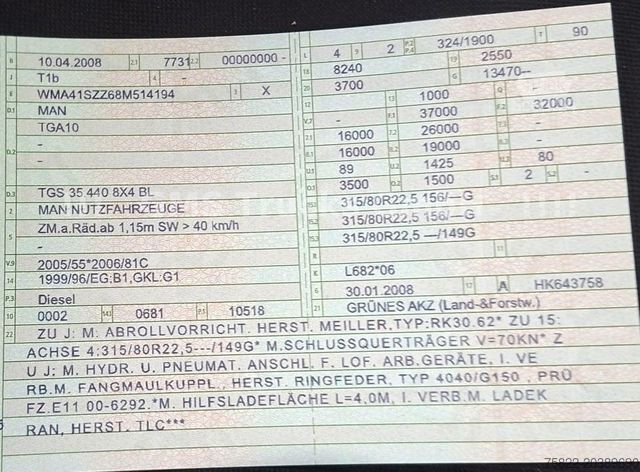 B 10.04.2008 2.1 7731 2.2 00000000 -
J T1b 4 -
E WMA41SZZ68M514194 3 X
D.1 MAN
TGA10
-
D.2 -
D.3 TGS 35.440 8X4 BL
2 MAN NUTZFAHRZEUGE
5 ZM.a.Räd.ab 1,15m SW > 40 km/h
-
V.9 2005/55*2006/81C
14 1999/96/EG:B1,GKL:G1
P.3 Diesel
10 0002 14.1 0681 P.1 10518
L 4 9 2 P.2 P.4 324/1900 T 90
18 8240 19 2550
20 3700 G 13470--
12 - 13 1000 Q -
V.7 - F.1 37000 F.2 32000
7.1 16000 7.2 26000 7.3 -
8.1 16000 8.2 19000 8.3 -
U.1 89 U.2 1425 U.3 80
O.1 3500 O.2 1500 S.1 2 S.2 -
15.1 315/80R22,5 156/---G
15.2 315/80R22,5 156/---G
15.3 315/80R22,5 ---/149G
R - 11
K L682*06
6 30.01.2008 17 A HK643758
21 GRÜNES AKZ (Land-&Forstw.)
22 ZU J: M. ABROLLVORRICHT. HERST. MEILLER,TYP:RK30.62* ZU 15:
ACHSE 4:315/80R22,5---/149G* M.SCHLUSSQUERTRÄGER V=70KN* Z
U J: M. HYDR. U. PNEUMAT. ANSCHL. F. LOF. ARB.GERÄTE, I. VE
RB.M. FANGMAULKUPPL., HERST. RINGFEDER, TYP 4040/G150 , PRÜ
FZ.E11 00-6292.*M. HILFSLADEFLÄCHE L=4,0M, I. VERB.M. LADEK
RAN, HERST. TLC***